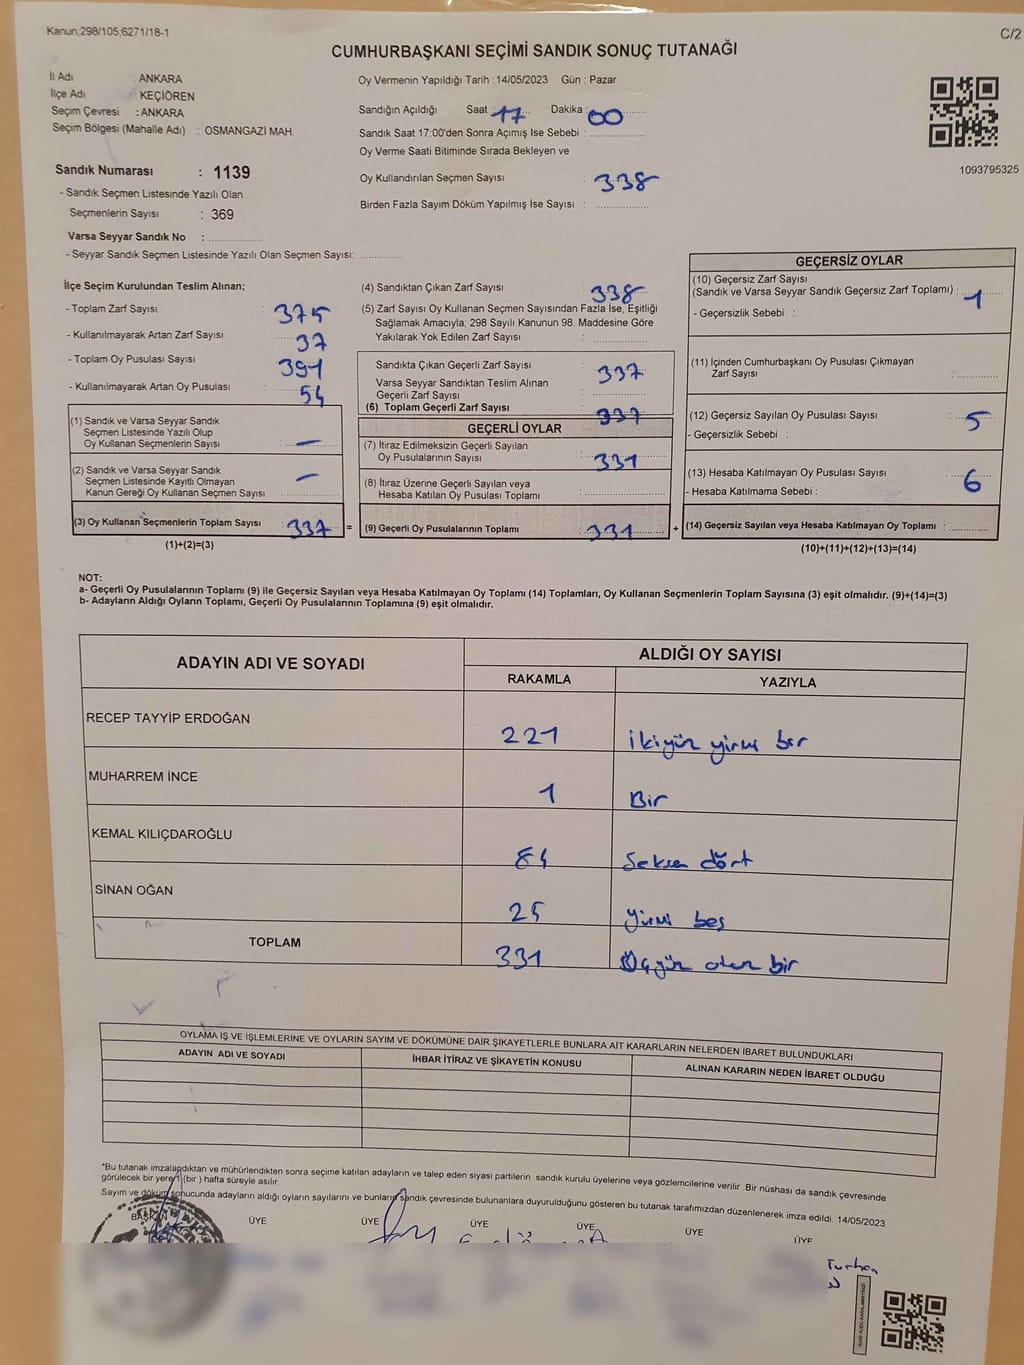 Kanun;298/105;6271/18-1
C/2
CUMHURBAŞKANI SEÇİMİ SANDIK SONUÇ TUTANAĞI
İl Adı : ANKARA
İlçe Adı : KEÇİÖREN
Seçim Çevresi : ANKARA
Seçim Bölgesi (Mahalle Adı) : OSMANGAZİ MAH.
Oy Vermenin Yapıldığı Tarih : 14/05/2023 Gün : Pazar
Sandığın Açıldığı Saat : 17 Dakika : 00
Sandık Saat 17:00'den Sonra Açımış İse Sebebi :
Oy Verme Saati Bitiminde Sırada Bekleyen ve
Oy Kullandırılan Seçmen Sayısı : 338
Birden Fazla Sayım Döküm Yapılmış İse Sayısı :
1093795325
Sandık Numarası : 1139
- Sandık Seçmen Listesinde Yazılı Olan
Seçmenlerin Sayısı : 369
Varsa Seyyar Sandık No :
- Seyyar Sandık Seçmen Listesinde Yazılı Olan Seçmen Sayısı:
İlçe Seçim Kurulundan Teslim Alınan;
- Toplam Zarf Sayısı : 375
- Kullanılmayarak Artan Zarf Sayısı : 37
- Toplam Oy Pusulası Sayısı : 391
- Kullanılmayarak Artan Oy Pusulası : 54
(1) Sandık ve Varsa Seyyar Sandık
Seçmen Listesinde Yazılı Olup
Oy Kullanan Seçmenlerin Sayısı : —
(2) Sandık ve Varsa Seyyar Sandık
Seçmen Listesinde Kayıtlı Olmayan
Kanun Gereği Oy Kullanan Seçmen Sayısı : —
(3) Oy Kullanan Seçmenlerin Toplam Sayısı : 337 =
(1)+(2)=(3)
(4) Sandıktan Çıkan Zarf Sayısı : 338
(5) Zarf Sayısı Oy Kullanan Seçmen Sayısından Fazla İse, Eşitliği
Sağlamak Amacıyla; 298 Sayılı Kanunun 98. Maddesine Göre
Yakılarak Yok Edilen Zarf Sayısı :
Sandıkta Çıkan Geçerli Zarf Sayısı : 337
Varsa Seyyar Sandıktan Teslim Alınan
Geçerli Zarf Sayısı :
(6) Toplam Geçerli Zarf Sayısı : 337
GEÇERLİ OYLAR
(7) İtiraz Edilmeksizin Geçerli Sayılan
Oy Pusulalarının Sayısı : 331
(8) İtiraz Üzerine Geçerli Sayılan veya
Hesaba Katılan Oy Pusulası Toplamı :
(9) Geçerli Oy Pusulalarının Toplamı : 331 +
GEÇERSİZ OYLAR
(10) Geçersiz Zarf Sayısı
(Sandık ve Varsa Seyyar Sandık Geçersiz Zarf Toplamı) : 1
- Geçersizlik Sebebi :
(11) İçinden Cumhurbaşkanı Oy Pusulası Çıkmayan
Zarf Sayısı :
(12) Geçersiz Sayılan Oy Pusulası Sayısı : 5
- Geçersizlik Sebebi :
(13) Hesaba Katılmayan Oy Pusulası Sayısı : 6
- Hesaba Katılmama Sebebi :
(14) Geçersiz Sayılan veya Hesaba Katılmayan Oy Toplamı :
(10)+(11)+(12)+(13)=(14)
NOT:
a- Geçerli Oy Pusulalarının Toplamı (9) ile Geçersiz Sayılan veya Hesaba Katılmayan Oy Toplamı (14) Toplamları, Oy Kullanan Seçmenlerin Toplam Sayısına (3) eşit olmalıdır. (9)+(14)=(3)
b- Adayların Aldığı Oyların Toplamı, Geçerli Oy Pusulalarının Toplamına (9) eşit olmalıdır.
ADAYIN ADI VE SOYADI ALDIĞI OY SAYISI
RAKAMLA YAZIYLA
RECEP TAYYİP ERDOĞAN 221 ikiyüz yirmi bir
MUHARREM İNCE 1 Bir
KEMAL KILIÇDAROĞLU 84 Seksen dört
SİNAN OĞAN 25 yirmi beş
TOPLAM 331 Üçyüz otuz bir
OYLAMA İŞ VE İŞLEMLERİNE VE OYLARIN SAYIM VE DÖKÜMÜNE DAİR ŞİKAYETLERLE BUNLARA AİT KARARLARIN NELERDEN İBARET BULUNDUKLARI
ADAYIN ADI VE SOYADI İHBAR İTİRAZ VE ŞİKAYETİN KONUSU ALINAN KARARIN NEDEN İBARET OLDUĞU
*Bu tutanak imzalandıktan ve mühürlendikten sonra seçime katılan adayların ve talep eden siyasi partilerin sandık kurulu üyelerine veya gözlemcilerine verilir .Bir nüshası da sandık çevresinde
görülecek bir yere 1 (bir ) hafta süreyle asılır.
Sayım ve döküm sonucunda adayların aldığı oyların sayılarını ve bunların sandık çevresinde bulunanlara duyurulduğunu gösteren bu tutanak tarafımızdan düzenlenerek imza edildi. 14/05/2023
BAŞKAN ÜYE ÜYE ÜYE ÜYE ÜYE ÜYE
Turhan